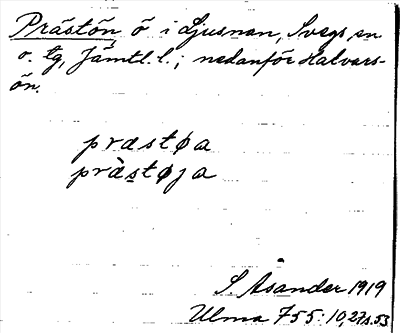 Prästön, ö i Ljusnan, Svegs sn
o. tg, Jämtl. l.; nedanför Halvars-
ön.
præstøa
præ̀støja
S Åsander 1919
Ulma 755:10,27 s.53